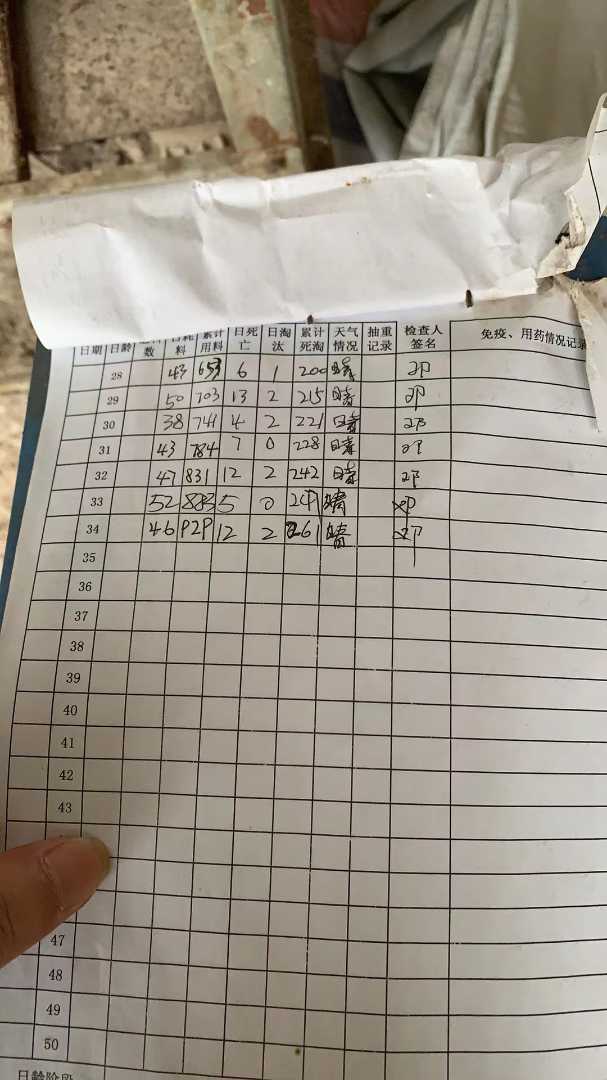 日期 日龄 数 日耗料 累计用料 日死亡 日淘汰 累计死淘 天气情况 抽重记录 检查人签名 免疫、用药情况记录
28 43 653 6 1 200 晴 邓
29 50 703 13 2 215 晴 邓
30 38 741 4 2 221 晴 邓
31 43 784 7 0 228 晴 邓
32 47 831 12 2 242 晴 邓
33 52 883 5 0 247 晴 邓
34 46 929 12 2 261 晴 邓
35
36
37
38
39
40
41
42
43
47
48
49
50
日龄阶段